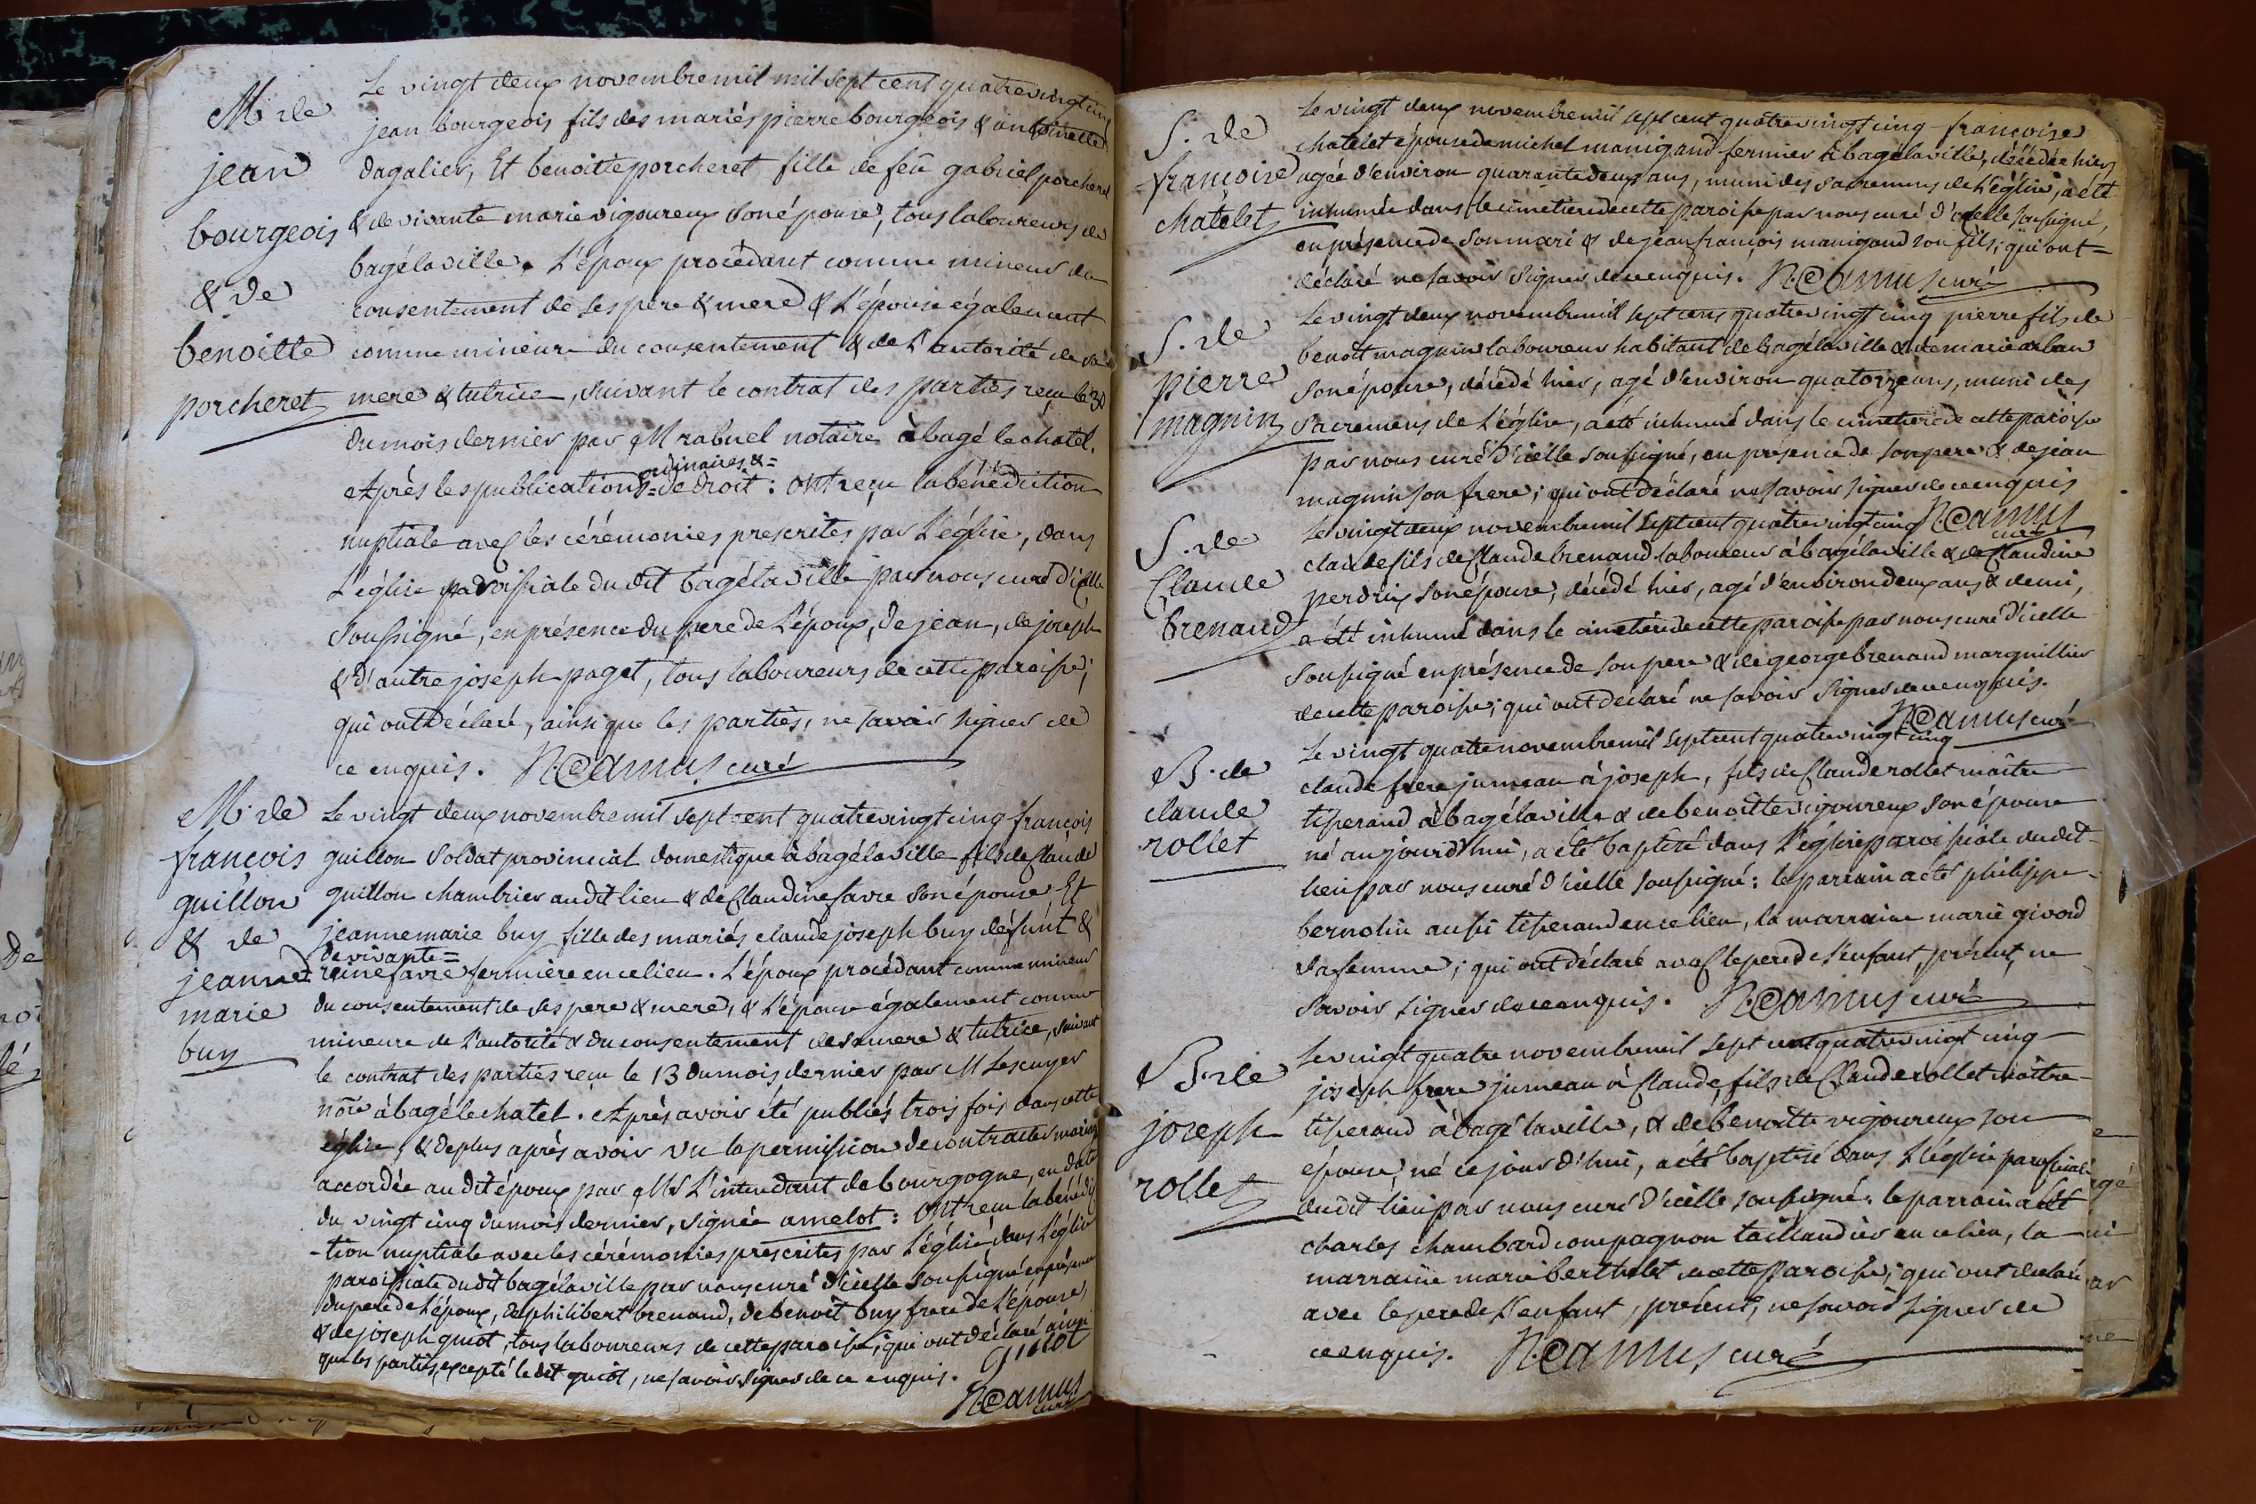 M de
jean
bourgeois
& de
benoitte
porcheret
Le vingt deux novembre mil mil sept cent quatre vingt cinq
jean bourgeois fils des mariés pierre bourgeois & antoinette
dagalier, Et benoitte porcheret fille de feu gabriel porcheret
& de vivante marie vigoureux son épouse, tous laboureurs de
bagélaville. L'époux procédant comme mineur du
consentement de ses pere & mere & L'épouse également
comme mineure du consentement & de L'autorité de sa
mere & tutrice, suivant le contrat des parties reçu le 30
du mois dernier par M rabuel notaire à bagé le chatel.
Après les publications ordinaires & = de droit : ont reçu la bénédiction
nuptiale avec les cérémonies prescrites par L'église, dans
L'église paroissiale du dit bagélaville par nous curé d'icelle
soussigné, en présence du pere de L'époux, de jean, de joseph
& d'autre joseph paget, tous laboureurs de cette paroisse;
qui ont déclaré, ainsi que les parties, ne savoir signer de
ce enquis. N. Camus curé
M de
françois
guillon
& de
jeanne
marie
buy
Le vingt deux novembre mil sept cent quatre vingt cinq françois
guillon soldat provincial domestique à bagélaville fils de Claude
guillon chambrier audit lieu & de Claudine favre son épouse Et
jeanne marie buy fille des mariés claude joseph buy défunt &
de vivante =
reine favre fermière en ce lieu. L'époux procédant comme mineur
du consentement de ses pere & mere, & L'épouse également comme
mineure de L'autorité & du consentement de sa mere & tutrice, suivant
le contrat des parties reçu le 13 du mois dernier par M Lescuyer
nore à bagé le chatel. Après avoir été publiés trois fois dans cette
église, & de plus après avoir vu la permission de contracter mariage
accordée audit époux par Mr L'intendant de bourgogne, en date
du vingt cinq du mois dernier, signée amelot : ont reçu la bénédic
-tion nuptiale avec les cérémonies prescrites par L'église dans L'église
paroissiale du dit bagélaville par nous curé d'icelle soussigné en présence
du pere de L'époux, de philibert brenaud, de benoit buy frere de L'épouse,
& de joseph guiot, tous laboureurs de cette paroisse, qui ont déclaré ainsi
que les parties, excepté le dit guiot, ne savoir signer de ce enquis.
guiot
N. Camus
curé
S. de
francoise
chatelet
Le vingt deux novembre mil sept cent quatre vingt cinq françoise
chatelet épouse de michel manigand fermier à bagélaville, décédée hier
agée d'environ quarante deux ans, muni des sacremens de L'église, a été
inhumée dans le cimetiere de cette paroisse par nous curé d'icelle soussigné,
en présence de son mari & de jean françois manigand son fils; qui ont =
déclaré ne savoir signer de ce enquis. N. Camus curé
S. de
pierre
magnin
Le vingt deux novembre mil sept cent quatre vingt cinq pierre fils de
benoit magnin laboureur habitant de bagélaville & de marie
son épouse, décédé hier, agé d'environ quatorze ans, muni des
sacremens de L'église, a été inhumé dans le cimetiere de cette paroisse
par nous curé d'icelle soussigné, en présence de son pere & de jean
magnin son frere; qui ont déclaré ne savoir signer de ce enquis
N. Camus
curé
S. de
Claude
brenaud
Le vingt deux novembre mil sept cent quatre vingt cinq
claude fils de Claude brenaud laboureur à bagélaville & de Claudine
perdrix son épouse, décédé hier, agé d'environ deux ans & demi,
a été inhumé dans le cimetiere de cette paroisse par nous curé d'icelle
soussigné en présence de son pere & de george brenaud marguillier
de cette paroisse; qui ont déclaré ne savoir signer de ce enquis.
N. Camus curé
B. de
claude
rollet
Le vingt quatre novembre mil sept cent quatre vingt cinq
claude frere jumeau à joseph, fils de Claude rollet maître
tisserand à bagélaville & de benoitte vigoureux son épouse
né aujourd'hui, a été baptisé dans L'église paroissiale dudit
lieu par nous curé d'icelle soussigné : le parrain a été philippe
bernolin aussi tisserand en ce lieu, la marraine marie givord
sa femme; qui ont déclaré avec le pere de L'enfant, présent, ne
savoir signer de ce enquis. N. Camus curé
B. de
joseph
rollet
Le vingt quatre novembre mil sept cent quatre vingt cinq
joseph frere jumeau à Claude, fils de Claude rollet maître
tisserand à bagélaville, & de benoitte vigoureux son
épouse, né ce jour d'hui, a été baptisé dans L'église paroissiale
dudit lieu par nous curé d'icelle soussigné. le parrain a été
charles chambard compagnon taillandier en ce lieu, la
marraine marie berthelet de cette paroisse; qui ont déclaré
avec le pere de L'enfant, présent, ne savoir signer de
ce enquis. N. Camus curé